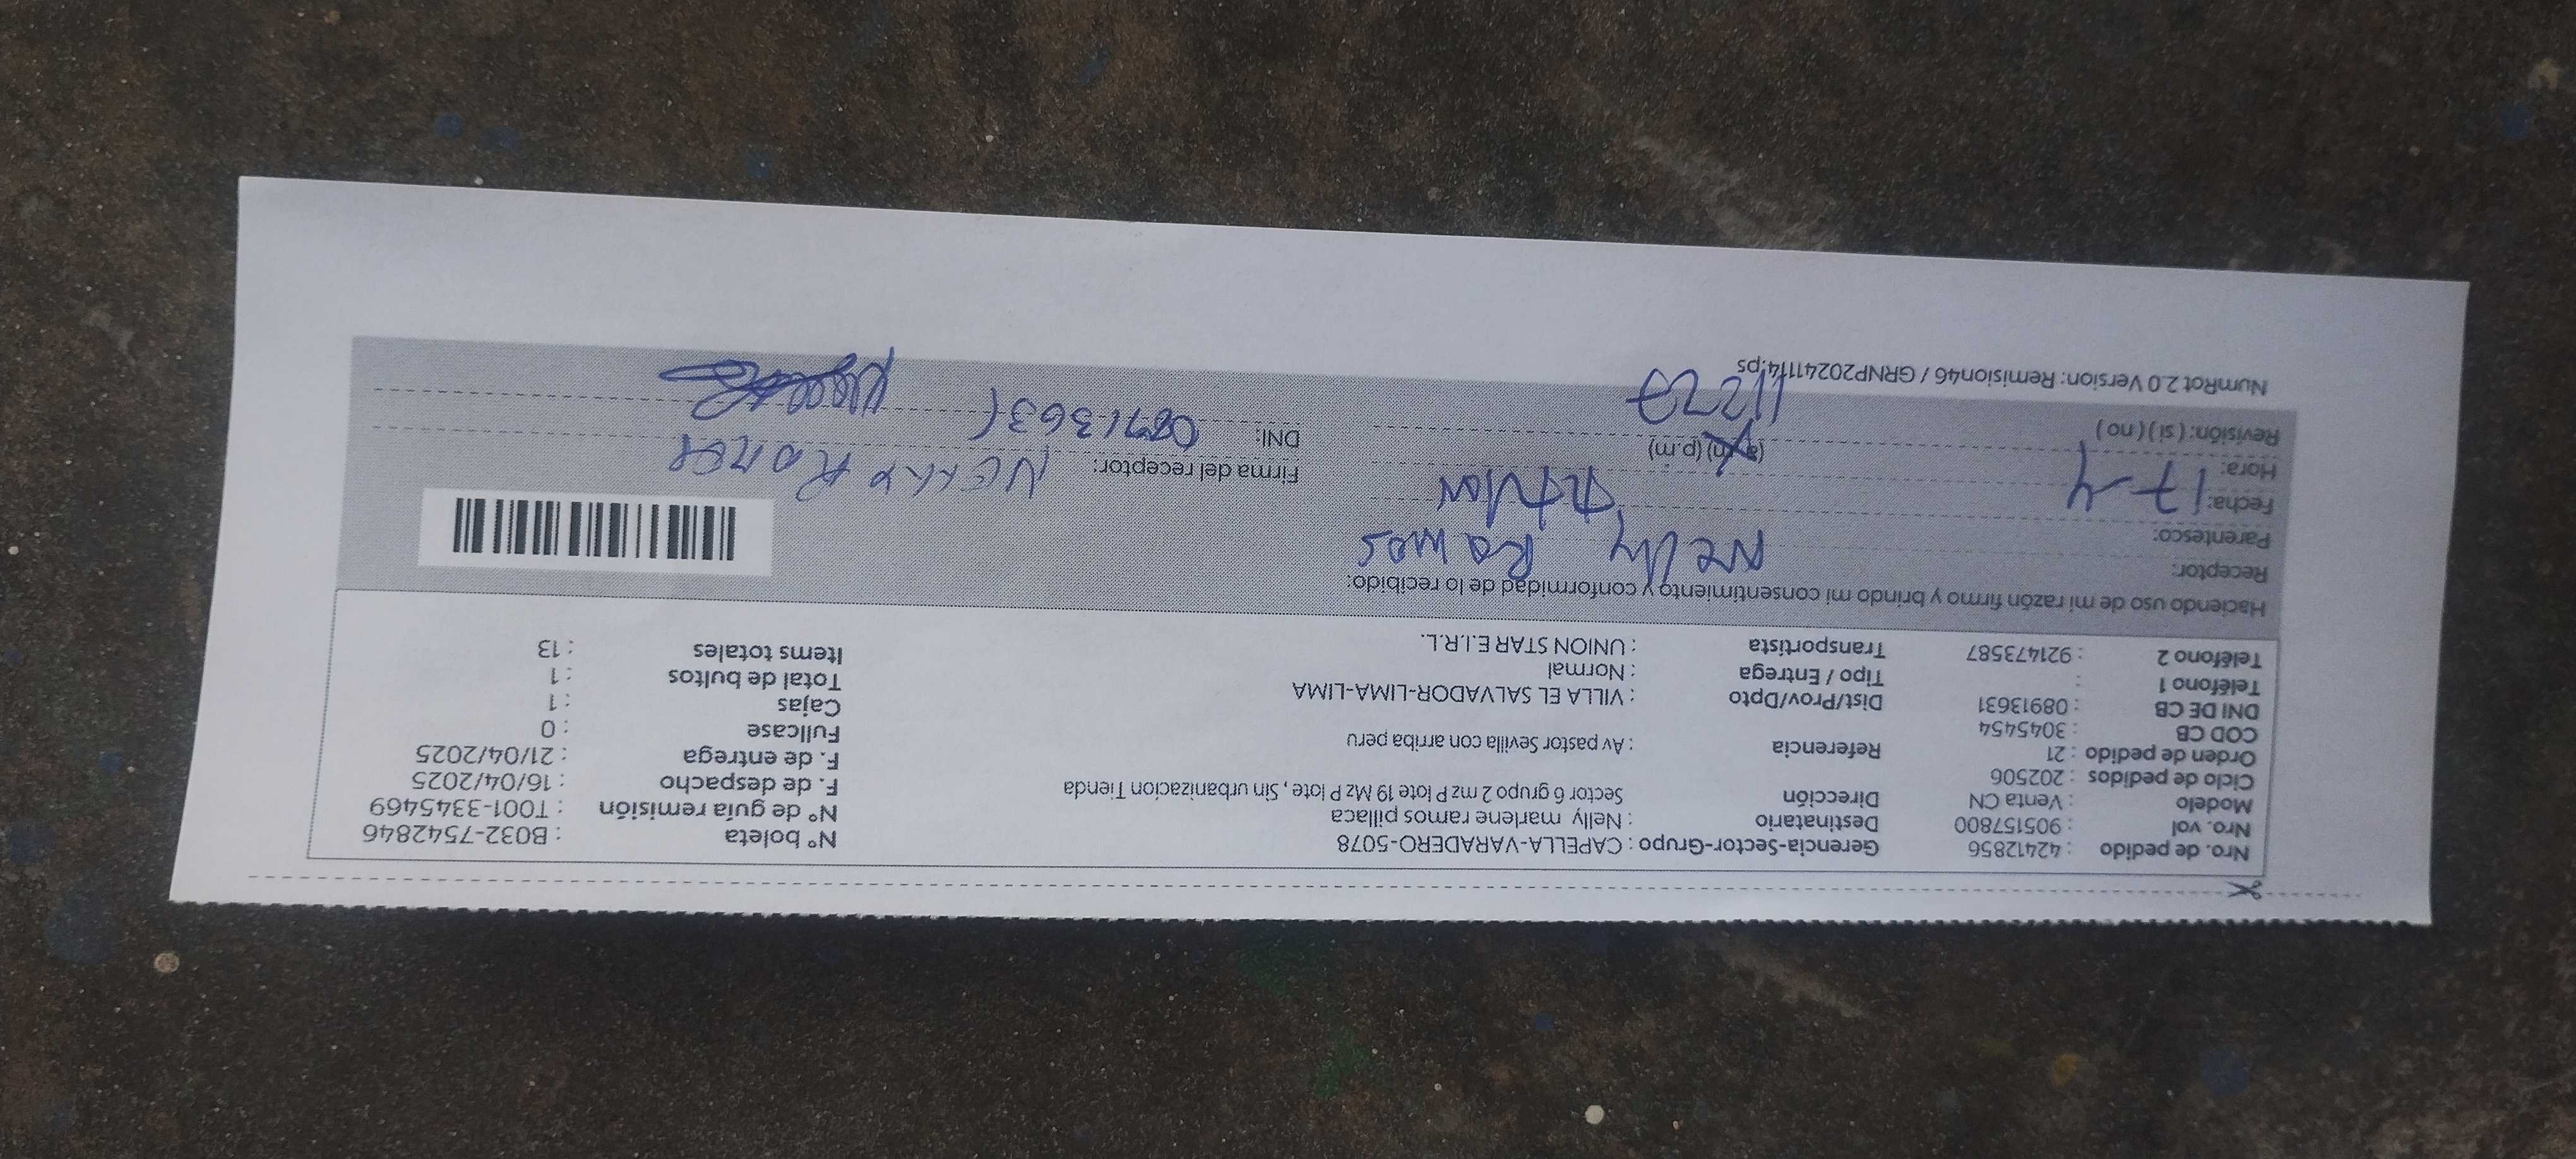 Nro. de pedido : 42412856 Gerencia-Sector-Grupo : CAPELLA-VARADERO-5078 N° boleta : B032-7542846
Nro. vol : 905157800 Destinatario : Nelly marlene ramos pillaca N° de guía remisión : T001-3345469
Modelo : Venta CN Dirección Sector 6 grupo 2 mz P lote 19 Mz P lote , Sin urbanizacion Tienda F. de despacho : 16/04/2025
Ciclo de pedidos : 202506 F. de entrega : 21/04/2025
Orden de pedido : 21 Referencia : Av pastor Sevilla con arriba peru Fullcase : 0
COD CB : 3045454 Cajas : 1
DNI DE CB : 08913631 Dist/Prov/Dpto : VILLA EL SALVADOR-LIMA-LIMA Total de bultos : 1
Teléfono 1 : Tipo / Entrega : Normal Items totales : 13
Teléfono 2 : 921473587 Transportista : UNION STAR E.I.R.L.
Haciendo uso de mi razón firmo y brindo mi consentimiento y conformidad de lo recibido:
Receptor: Nelly Ramos
Parentesco: Titular
Fecha: 17-4 Firma del receptor: Nelly Ramos
Hora: (a.m) (p.m) DNI:
Revisión: ( si ) ( no ) 11:27
NumRot 2.0 Version: Remision46 / GRNP20241114.ps